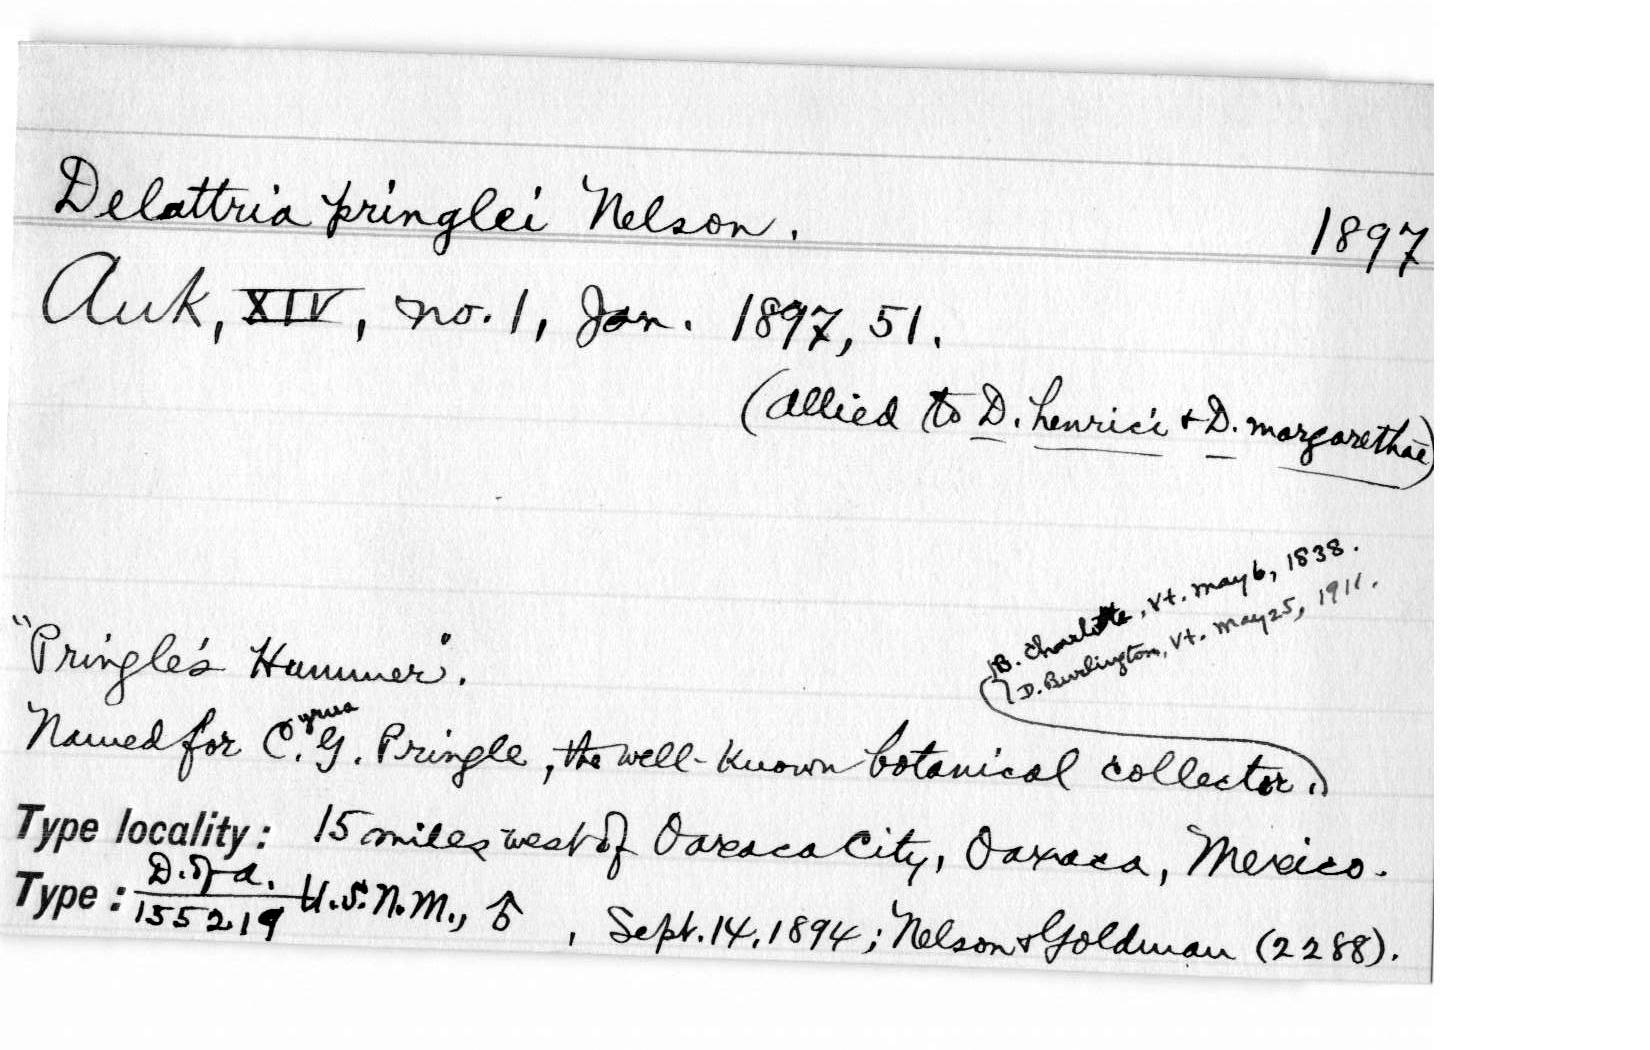 Delattria pringlei Nelson. 1897
Auk, XIV, no. 1, Jan. 1897, 51.
(allied to D. henrici + D. margarethae)
B. Charlotte, Vt. May 6, 1838.
D. Burlington, Vt. May 25, 1911.
"Pringle's Hummer".
Named for Cyrus G. Pringle, the well-known botanical collector.
Type locality: 15 miles west of Oaxaca City, Oaxaca, Mexico.
Type: D. of A. 155219 U.S.N.M., ♂, Sept. 14, 1894; Nelson & Goldman (2288).